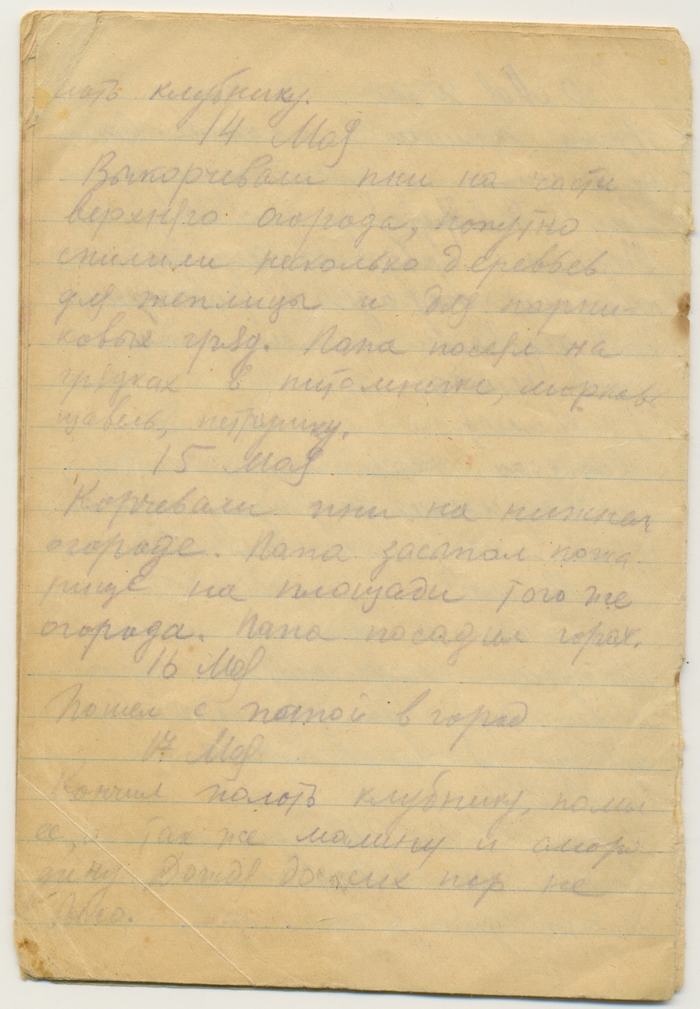 лоть клубнику.
14 Мая
Выкорчевали пни на части
верхнего огорода, попутно
спилили несколько деревьев
для теплицы и для парни-
ковых гряд. Папа посеял на
грядках в питомнике, морковь
щавель, петрушку.
15 мая
Корчевали пни на нижнем
огороде. Папа засыпал пожа
рище на площади того же
огорода. Папа посадил горох.
16 Мая
Пошел с папой в город
17 Мая
Кончил полоть клубнику,
ее, а так же малину и смородину
Дождя до сих пор не
было.